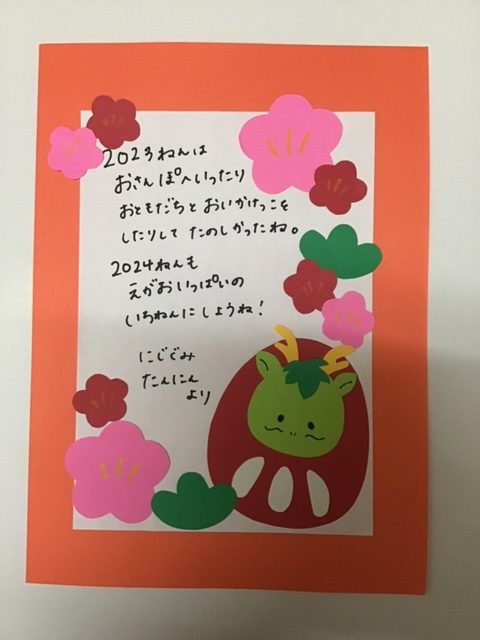 2023ねんは
おさんぽへいったり
おともだちとおいかけっこを
したりして たのしかったね。
2024ねんも
えがおいっぱいの
いちねんにしようね!
にじぐみ
たんにん
より